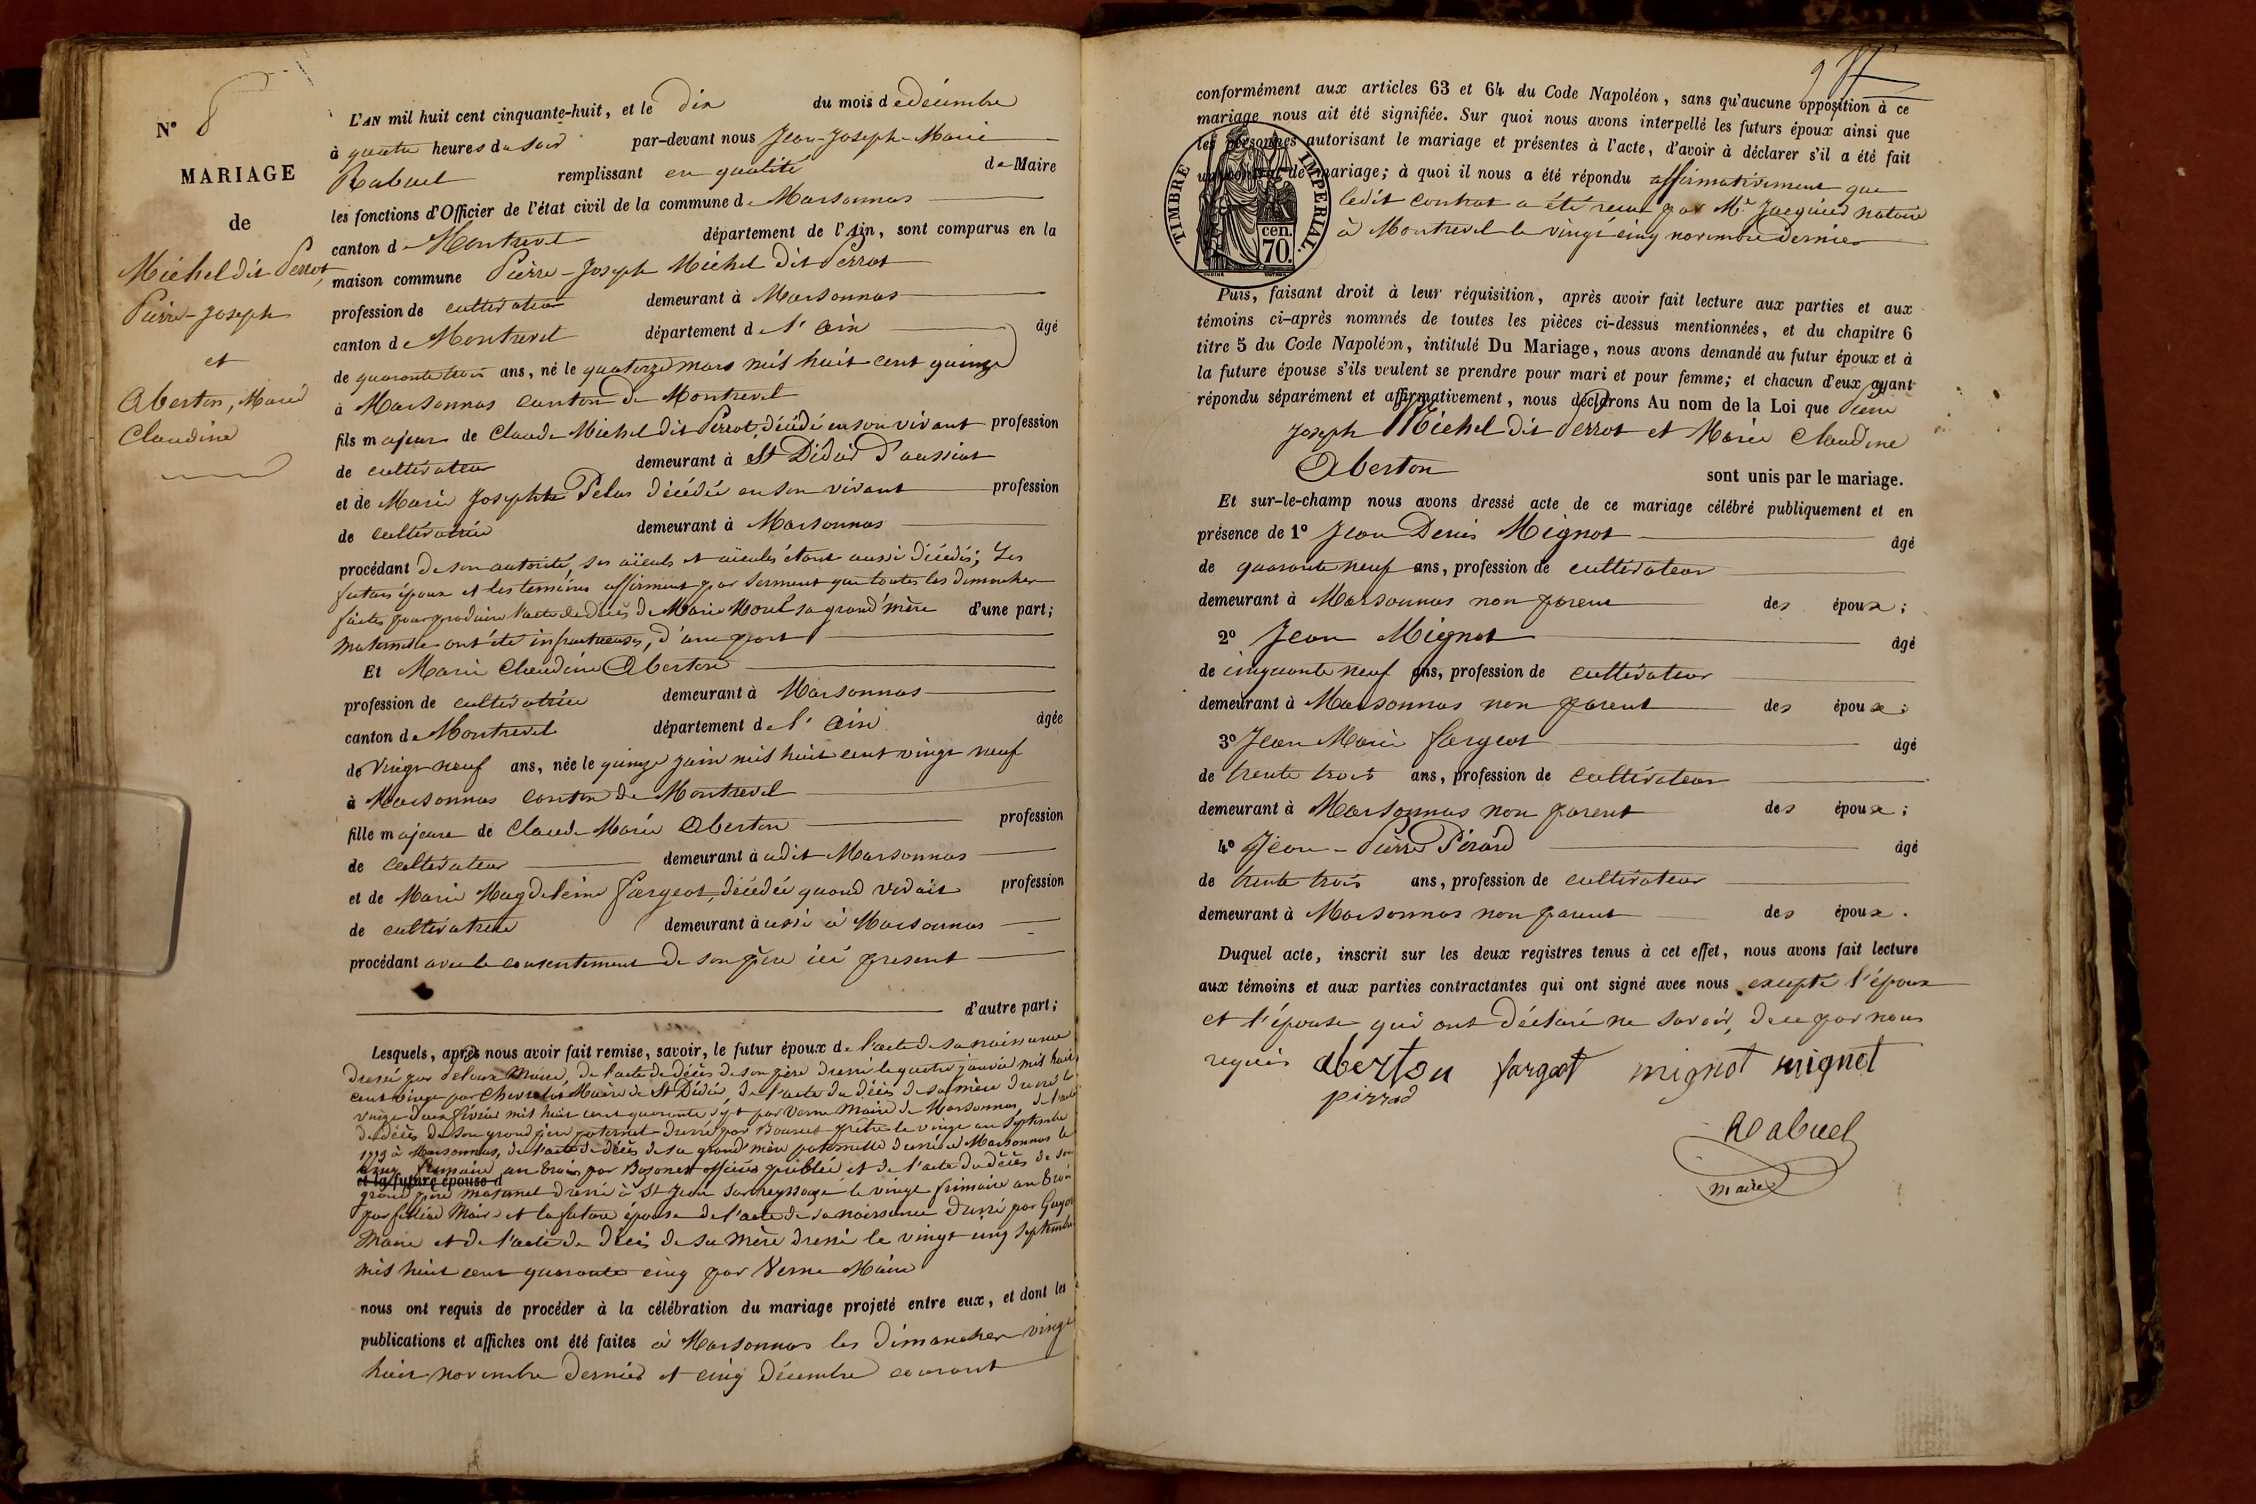 N° 8
MARIAGE
de
Michel dit Perrot,
Pierre-Joseph
et
Aberton, Marie
Claudine
L'AN mil huit cent cinquante-huit, et le dix du mois de décembre
à quatre heures du soir par-devant nous Jean-Joseph-Marie
Rabuel remplissant en qualité de Maire
les fonctions d'Officier de l'état civil de la commune de Marsonnas
canton de Montrevel département de l'Ain, sont comparus en la
maison commune Pierre-Joseph Michel dit Perrot
profession de cultivateur demeurant à Marsonnas
canton de Montrevel département de l'Ain âgé
de quarante trois ans, né le quatorze mars mil huit cent quinze
à Marsonnas canton de Montrevel
fils majeur de Claude Michel dit Perrot, décédé en son vivant profession
de cultivateur demeurant à St Didier d'aussiat
et de Marie Josephte Pelus décédée en son vivant profession
de cultivatrice demeurant à Marsonnas
procédant de son autorité, ses aïeuls et aïeules étant aussi décédés; Les
futurs époux et les témoins affirment par serment que toutes les démarches
faites pour produire l'acte de décès de Marie Morel sa grand'mère d'une part;
maternelle ont été infructueuses, d'une part
Et Marie Claudine Aberton
profession de cultivatrice demeurant à Marsonnas
canton de Montrevel département de l'Ain âgée
de vingt neuf ans, née le quinze juin mil huit cent vingt neuf
à Marsonnas canton de Montrevel
fille majeure de Claude Marie Aberton profession
de cultivateur demeurant audit Marsonnas
et de Marie Magdeleine Fargeot, décédée quand vivait profession
de cultivatrice demeurant aussi à Marsonnas
procédant avec le consentement de son père ici présent
d'autre part;
Lesquels, après nous avoir fait remise, savoir, le futur époux de l'acte de sa naissance
dressé par Maire, de l'acte de décès de son père dressé le quatre janvier mil huit
cent vingt par Chevrolat Maire de St Didier, de l'acte du décès de sa mère dressé le
vingt deux février mil huit cent quarante sept par Verne Maire de Marsonnas, de l'acte
de décès de son grand père paternel dressé par prêtre le vingt un septembre
à Marsonnas, de l'acte de décès de sa grand'mère paternelle dressé à Marsonnas le
an trois par officier public et de l'acte du décès de son
et la future épouse d
grand père maternel dressé à St Jean sur reyssouze le vingt frimaire an trois
par Maire et la future épouse de l'acte de sa naissance dressé par Guyon
Maire et de l'acte de décès de sa mère dressé le vingt cinq septembre
mil huit cent quarante cinq par Verne Maire
nous ont requis de procéder à la célébration du mariage projeté entre eux, et dont les
publications et affiches ont été faites à Marsonnas les dimanches vingt
huit novembre dernier et cinq décembre courant
conformément aux articles 63 et 64 du Code Napoléon, sans qu'aucune opposition à ce
mariage nous ait été signifiée. Sur quoi nous avons interpellé les futurs époux ainsi que
les personnes autorisant le mariage et présentes à l'acte, d'avoir à déclarer s'il a été fait
un contrat de mariage; à quoi il nous a été répondu affirmativement que
ledit contrat a été recu par Me Jacquier notaire
à Montrevel le vingt cinq novembre dernier
TIMBRE IMPERIAL.
cen.
70.
Puis, faisant droit à leur réquisition, après avoir fait lecture aux parties et aux
témoins ci-après nommés de toutes les pièces ci-dessus mentionnées, et du chapitre 6
titre 5 du Code Napoléon, intitulé Du Mariage, nous avons demandé au futur époux et à
la future épouse s'ils veulent se prendre pour mari et pour femme; et chacun d'eux ayant
répondu séparément et affirmativement, nous déclarons Au nom de la Loi que Pierre
Joseph Michel dit Perrot et Marie Claudine
Aberton sont unis par le mariage.
Et sur-le-champ nous avons dressé acte de ce mariage célébré publiquement et en
présence de 1° Jean Denis Mignot âgé
de quarante neuf ans, profession de cultivateur
demeurant à Marsonnas non parent des époux;
2° Jean Mignot âgé
de cinquante neuf ans, profession de cultivateur
demeurant à Marsonnas non parent des époux;
3° Jean Marie Fargeot âgé
de trente trois ans, profession de cultivateur
demeurant à Marsonnas non parent des époux;
4° Jean-Pierre Pirard âgé
de trente trois ans, profession de cultivateur
demeurant à Marsonnas non parent des époux.
Duquel acte, inscrit sur les deux registres tenus à cet effet, nous avons fait lecture
aux témoins et aux parties contractantes qui ont signé avec nous excepté l'époux
et l'épouse qui ont déclaré ne savoir, de ce par nous
requis aberton fargeot mignot mignot
pirrad
Rabuel
maire